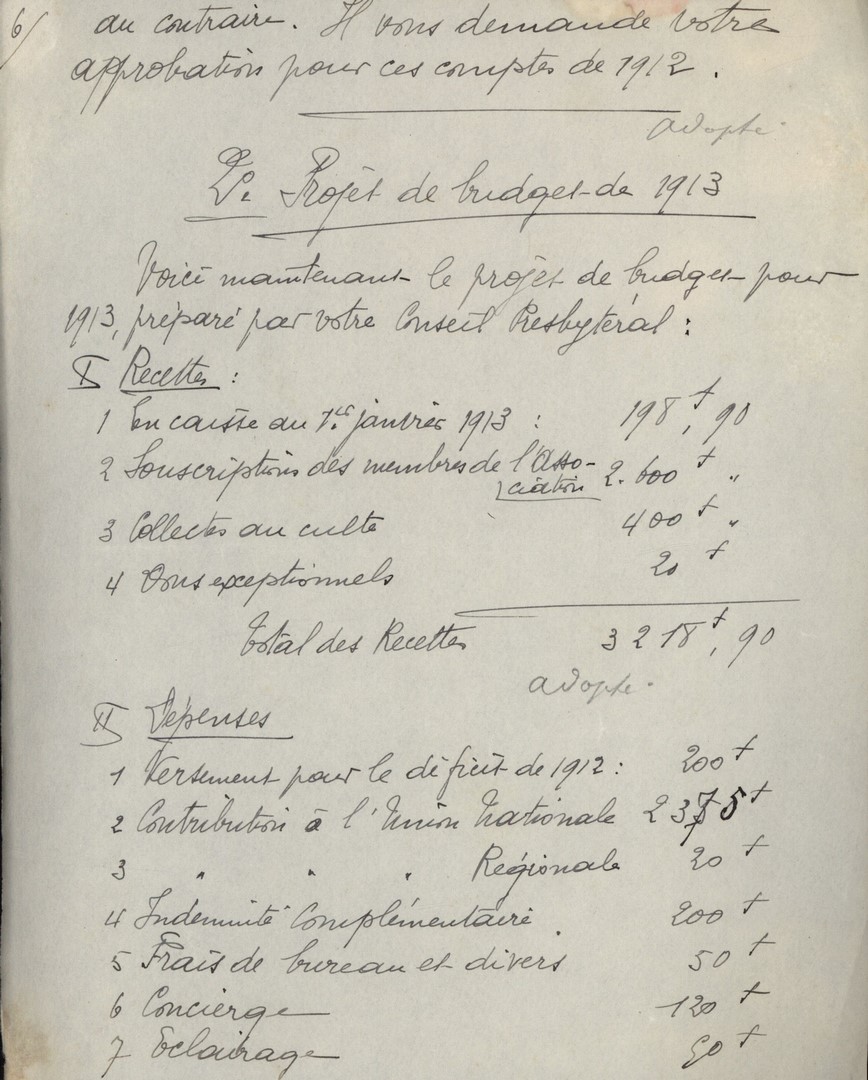 6/
au contraire. Il vous demande votre
approbation pour ces comptes de 1912.
adopté.
2º. Projet de budget de 1913
Voici maintenant le projet de budget pour
1913, préparé par votre Conseil Presbytéral :
I Recettes :
1 En caisse au 1er janvier 1913 : 198f,90
2 Souscriptions des membres de l'Asso-
ciation 2.600f "
3 Collectes au culte 400f "
4 Dons exceptionnels 20f
Total des Recettes 3218f,90
adopté.
II Dépenses
1 Versement pour le déficit de 1912 : 200f
2 Contribution à l'Union Nationale 2375f
3 " " " Régionale 20f
4 Indemnité Complémentaire 200f
5 Frais de bureau et divers 50f
6 Concierge 120f
7 Eclairage